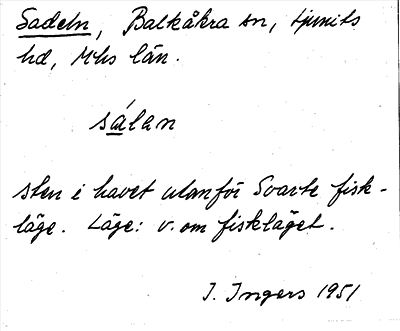 Sadeln, Balkåkra sn, Ljunits
hd, Mhs län.
sálan
sten i havet utanför Svarte fisk-
läge. Läge: v. om fiskläget.
I. Ingers 1951